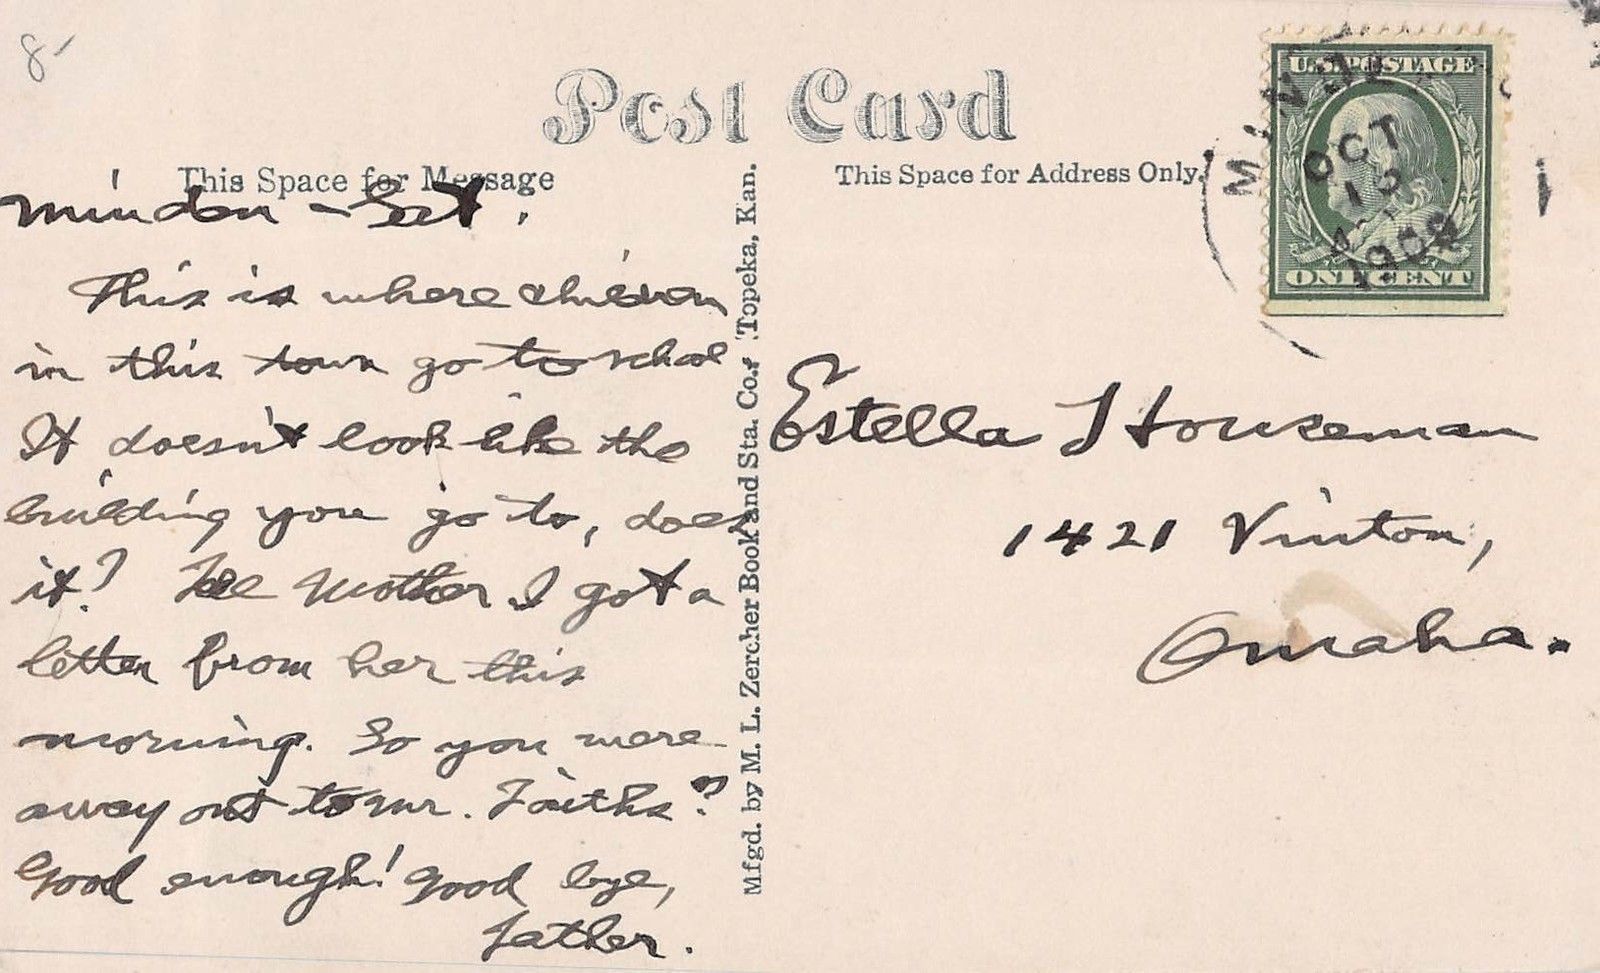 8-
Post Card
This Space for Message
This Space for Address Only.
U.S. POSTAGE
ONE CENT
MINDEN
OCT
12
1909
Minden - Oct.
This is where children
in this town go to school
It doesn't look like the
building you go to, does
it? Tell Mother I got a
letter from her this
morning. So you were
away out to Mr. Faiths?
Good enough! Good bye,
Father.
Mfgd. by M. L. Zercher Book and Sta. Co., Topeka, Kan.
Estella Houseman
1421 Vinton,
Omaha.